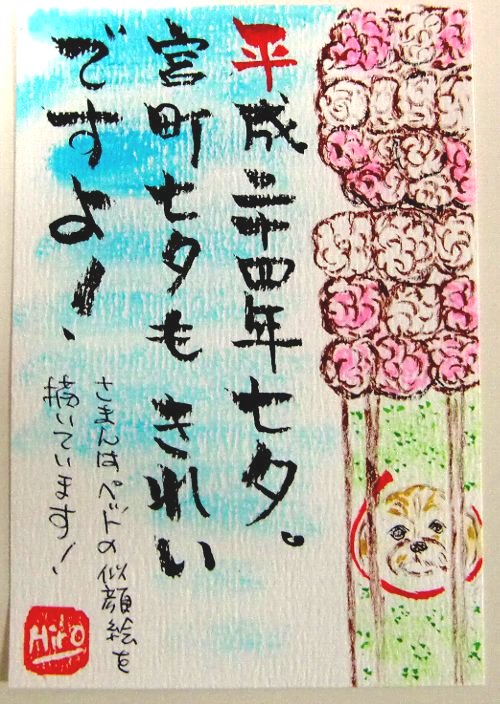 平成二十四年七夕。
宮町七夕もきれい
ですよ！
さまんはペットの似顔絵を
描いています！
Hiro